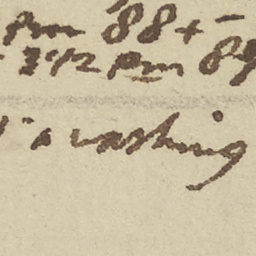 pm 88 + -
3 1/2 pm 89
a washing